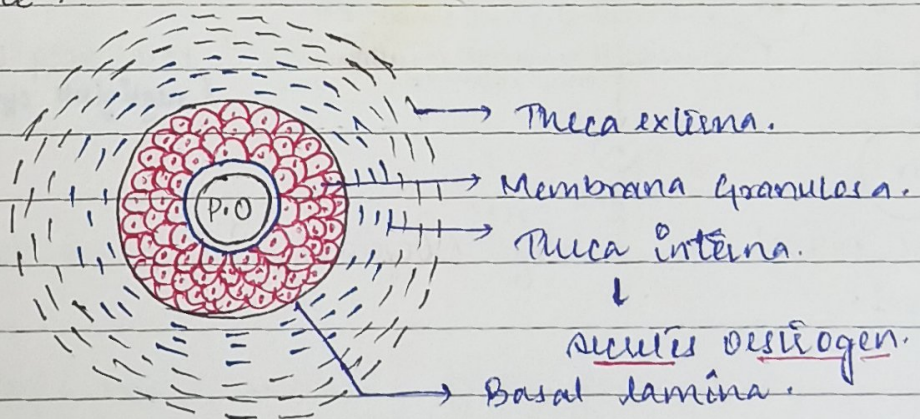 P.O
Theca externa.
Membrana Granulosa.
Theca interna.
secretes oestrogen.
Basal lamina.